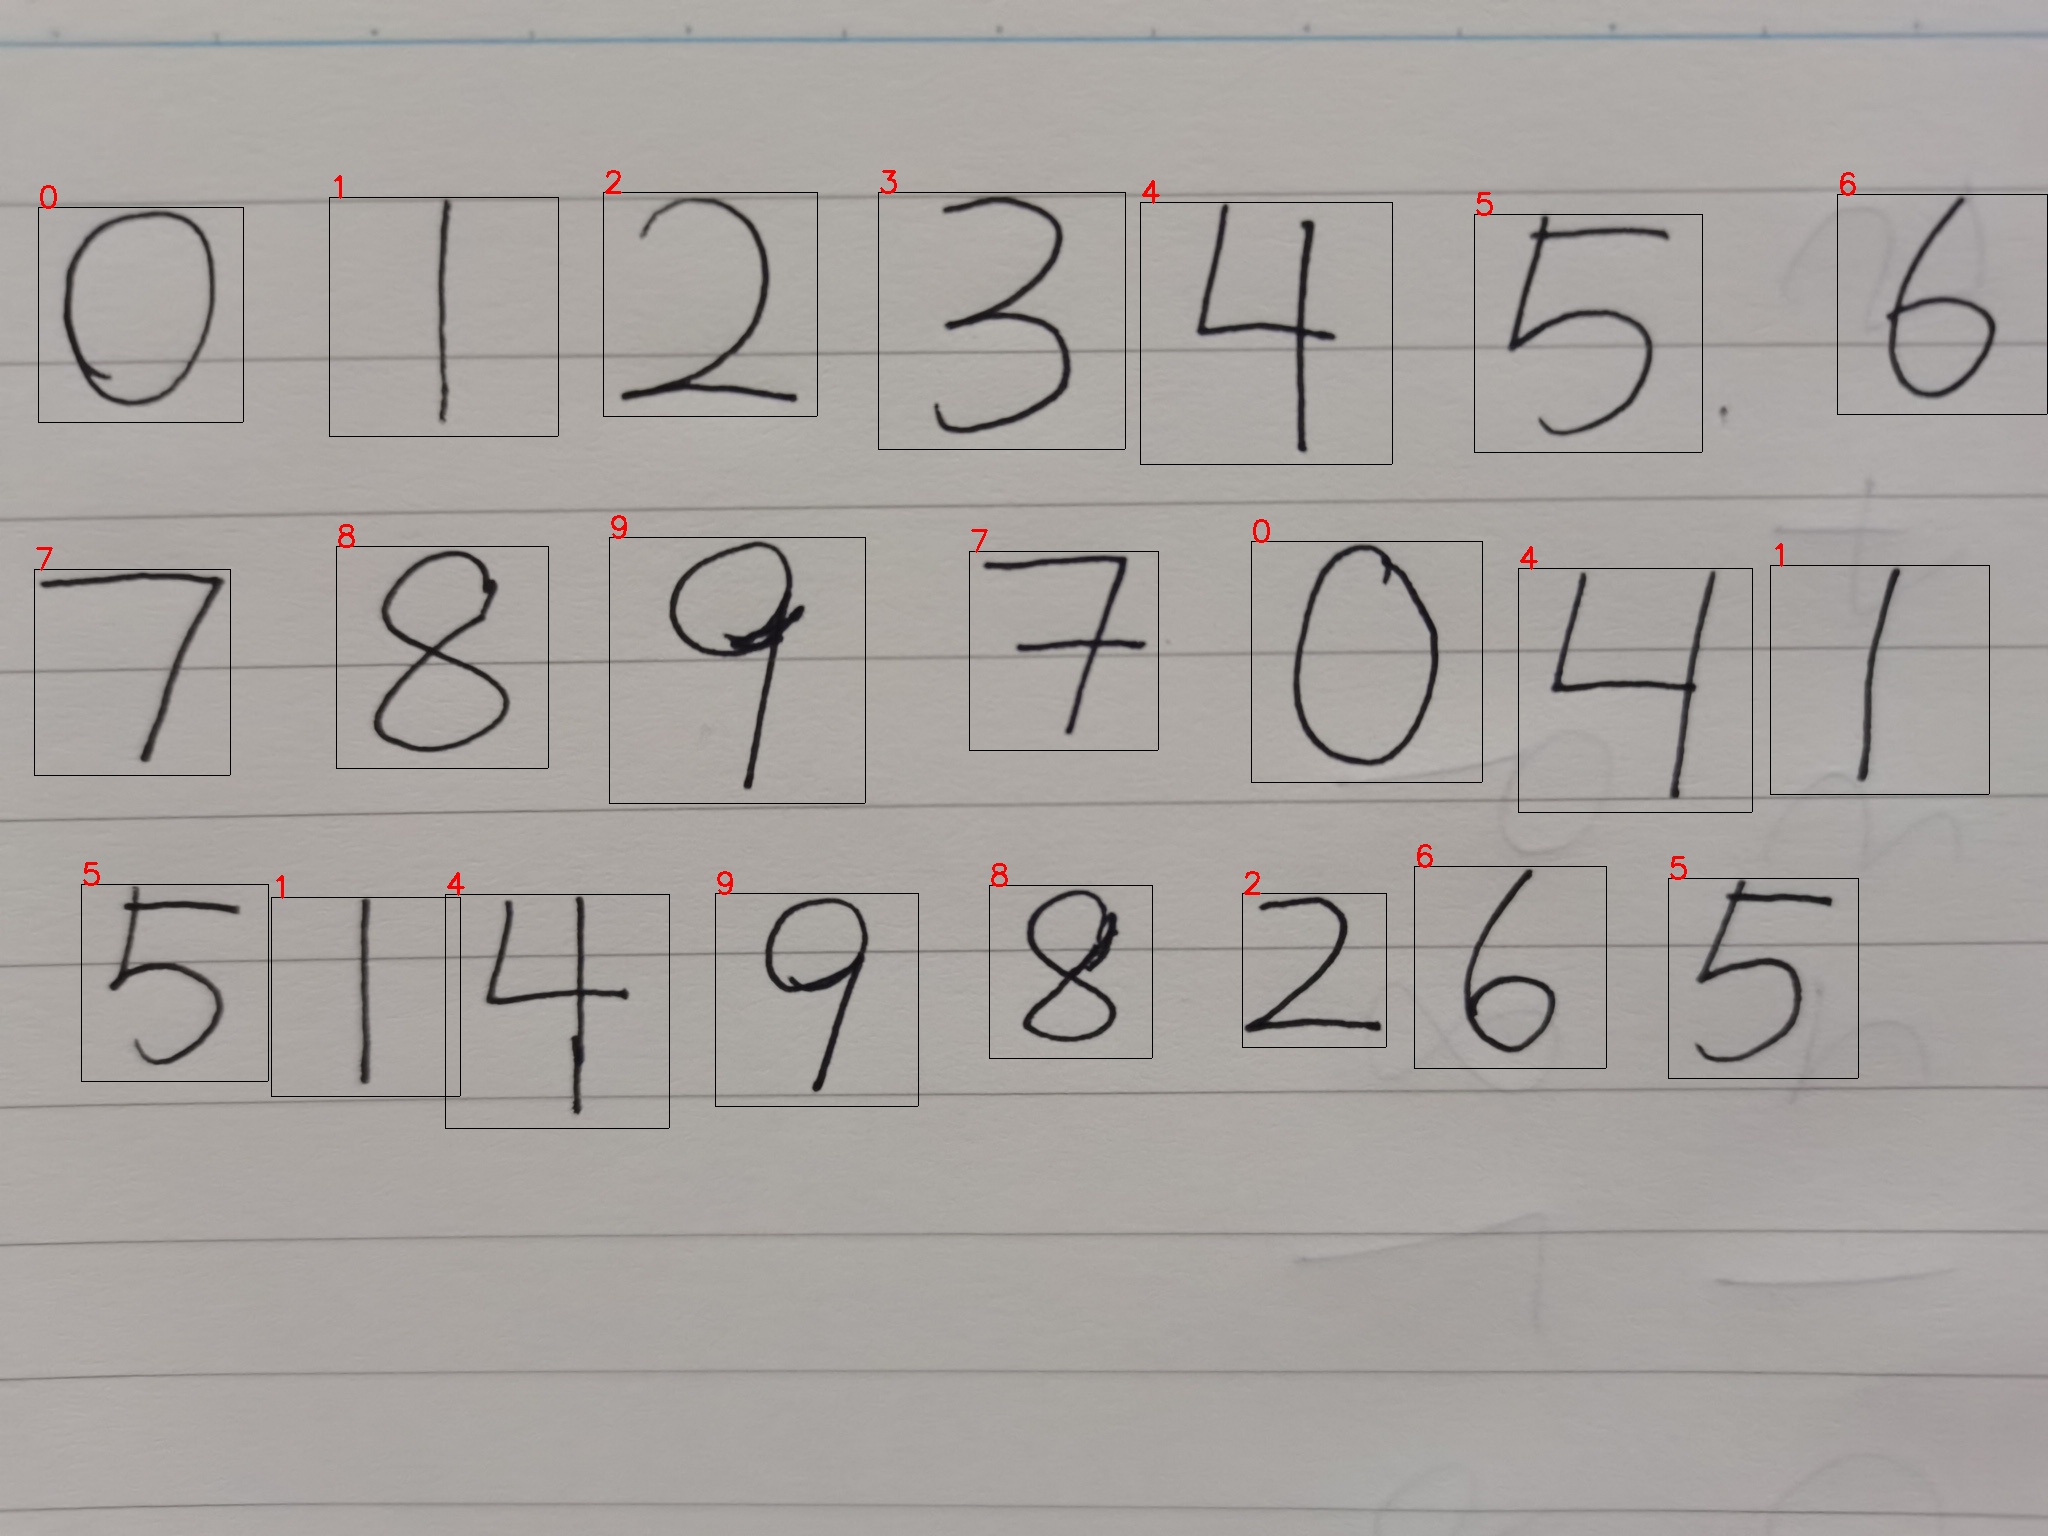 0 1 2 3 4 5 6
0 1 2 3 4 5 . 6
7 8 9 7 0 4 1
7 8 9 7 0 4 1
5 1 4 9 8 2 6 5
5 1 4 9 8 2 6 5